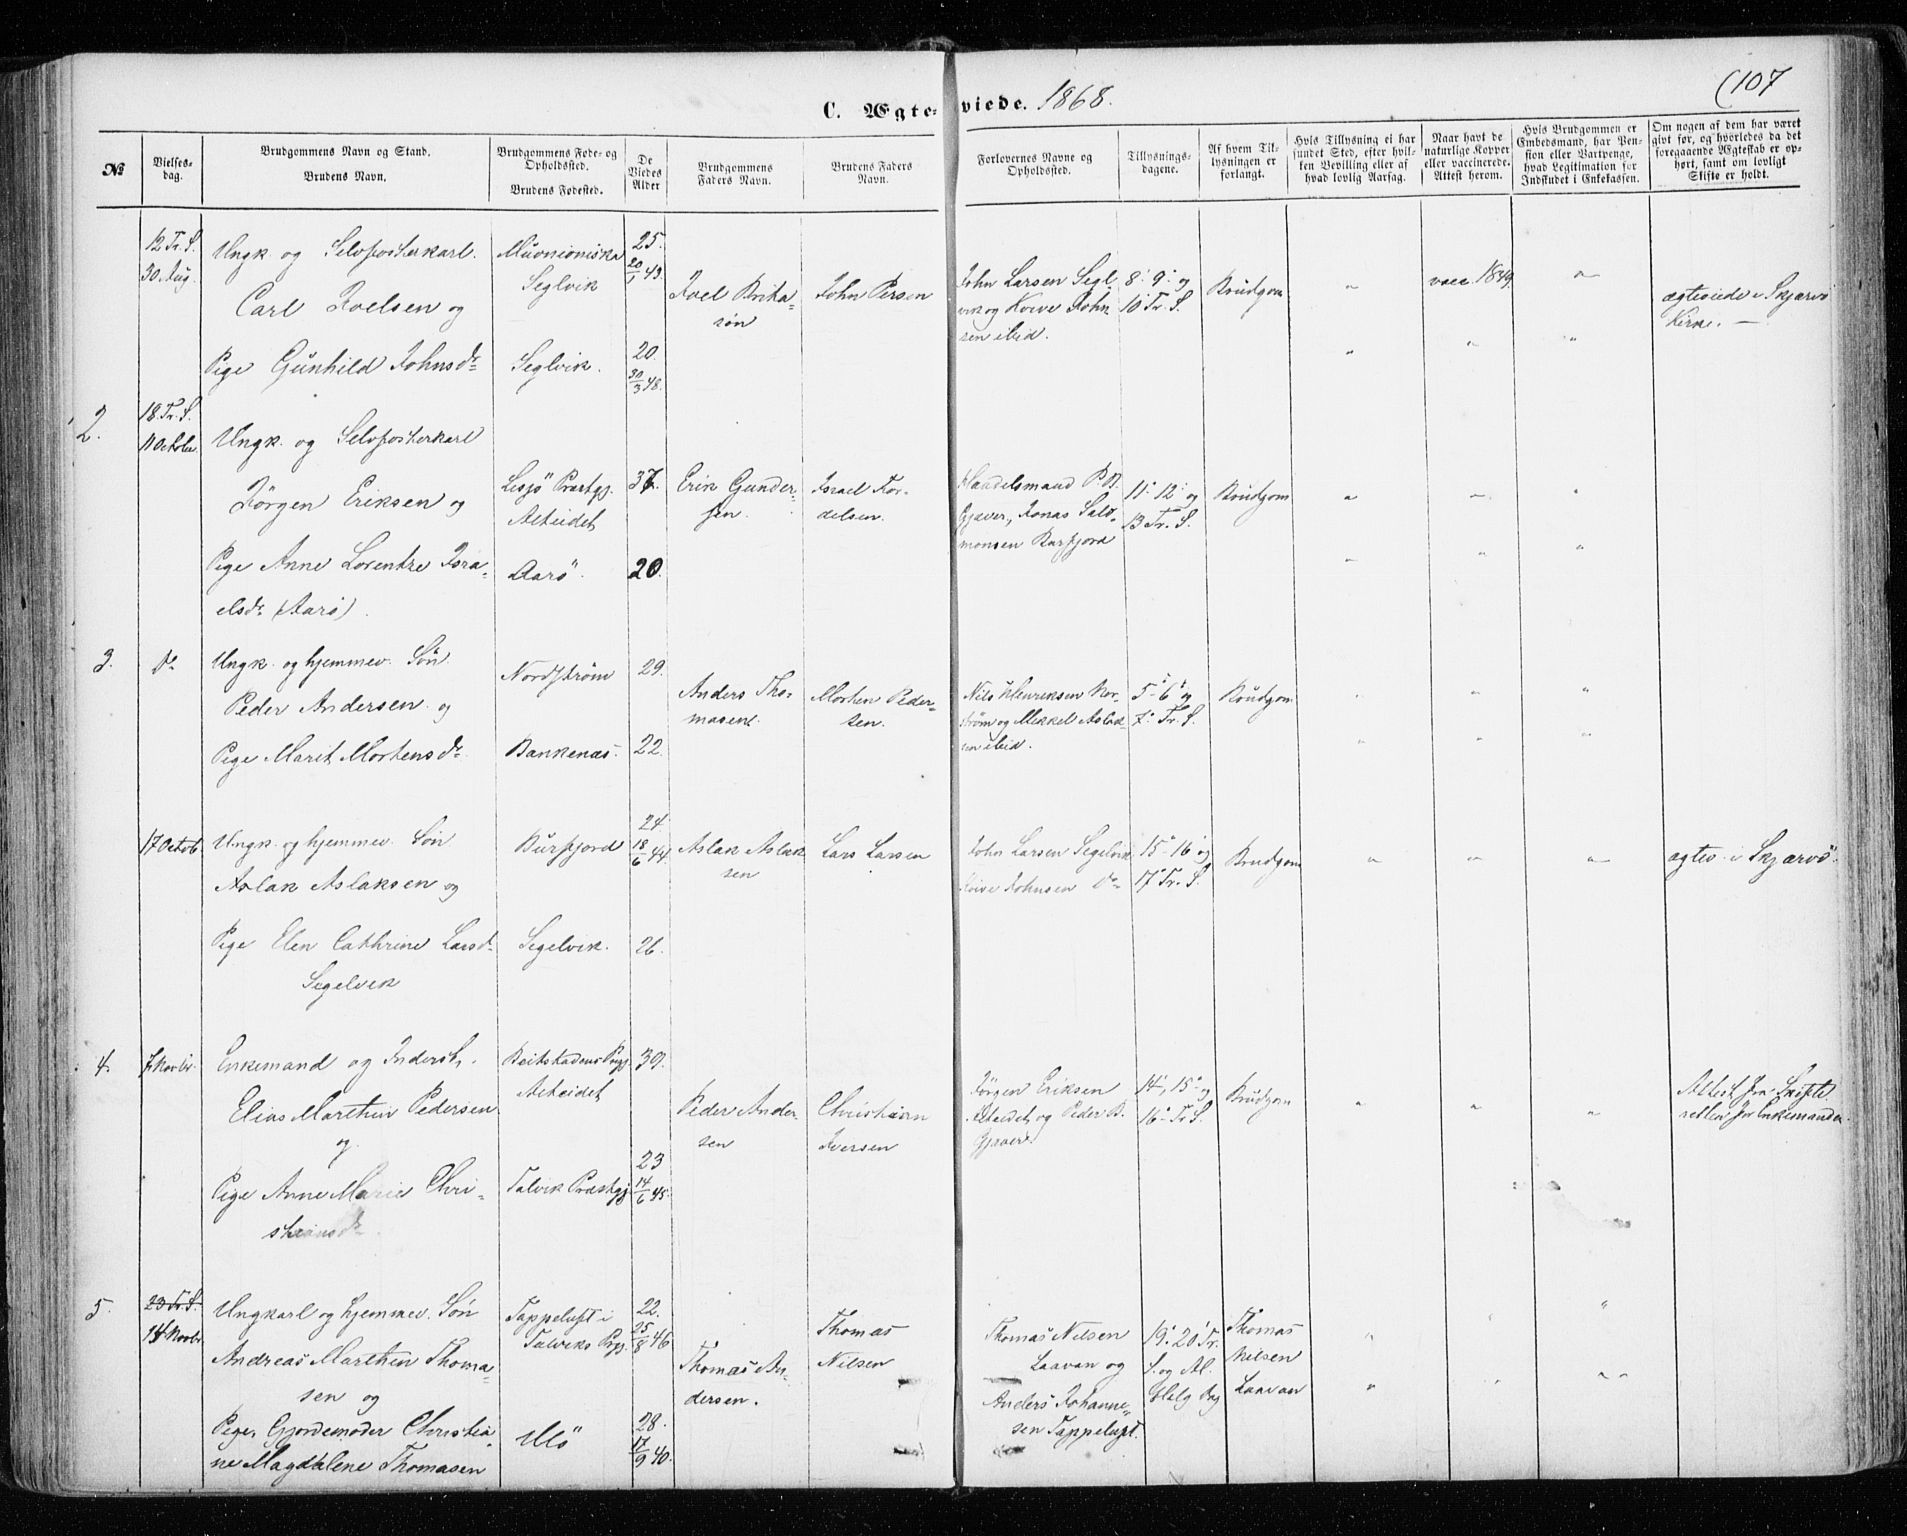 C. Ægte- viede. 1868.
(107
№
Vielses-
dag.
Brudgommens Navn og Stand.
Brudens Navn.
Brudgommens Føde- og
Opholdssted.
Brudens Fødested.
De
Viedes
Alder
Brudgommens
Faders Navn.
Brudens Faders
Navn.
Forlovernes Navne og
Opholdssted.
Tillysnings-
dagene.
Af hvem Til-
lysningen er
forlangt.
Hvis Tillysning ei har
fundet Sted, efter hvil-
ken Bevilling eller af
hvad lovlig Aarsag.
Naar havt de
naturlige Kopper
eller vaccinerede.
Attest herom.
Hvis Brudgommen er
Embedsmand, har Pen-
sion eller Vartpenge,
hvad Legitimation for
Indskudet i Enkekassen.
Om nogen af dem har været
givt før, og hvorledes da det
foregaaende Ægteskab er op-
hørt, samt om lovligt
Skifte er holdt.
12 Tr. S.
30 Aug.
Ungk. og Selvfosterkarl.
Carl Joelsen og
Pige Gunhild Johnsdr
Muonioniska
Seglvik
Seglvik.
25.
20/1 43.
20.
30/3 48.
Joel Brita-
søn
John Persen
John Larsen Segl-
vik og Koive John-
sen ibid.
8. 9. og
10 Tr. S.
Brudgom
" vacc. 1849 "
ægteviede i Skjærvö
Kirke. —
2.
18. Tr. S.
11 October
Ungk. og Selvfosterkarl
Jörgen Eriksen og
Pige Anne Lorentze Isra-
elsdr (Aarö)
Lesjö Præstgj.
Alteidet
Aarö.
37.
20.
Erik Gunder-
sen.
Israel For-
delsen.
Handelsmand P. B.
Gjæver, Jonas Salo-
monsen Burfjord
11. 12. og
13 Tr. S.
Brudgom
3.
do
Ungk. og hjemmev. Søn
Peder Andersen og
Pige Maret Mortensdr
Nordstrøm
Bankenæs.
29.
22.
Anders Tho-
masen.
Morten Peder-
sen.
Nils Henriksen Nor-
strøm og Mikkel Aslak-
sen ibid.
5. 6. og
7. Tr. S.
Brudgom
17 Octob.
Ungk. og hjemmev. Søn
Aslak Aslaksen og
Pige Elen Cathrine Larsdr
Segelvik
Burfjord
Segelvik.
24
18/6 44.
26.
Aslak Aslak-
sen
Lars Larsen
John Larsen Segelvik
Koive Johnsen do
15. 16. og
17. Tr. S.
Brudgom
ægtev. i Skjærvö.
4.
7 Novbr.
Enkemand og Inderst,
Elias Marthin Pedersen
og
Pige Anne Marie Chri-
stiansdr
Beitstadens Prgj.
Alteidet
Talvik Præstgj.
39.
23
14/6 45.
Peder Ander-
sen
Christian
Iversen
Jörgen Eriksen
Alteidet og Peder B.
Gjæver.
14., 15. og
16. Tr. S.
Brudgom
Attest fra Skifte-
retten for Enkemanden
5.
23 Tr. S.
14 Novbr.
Ungkarl og hjemmev. Søn
Andreas Marthin Thoma-
sen og
Pige, Gjordemoder Christia-
ne Magdalene Thomasen
Tappeluft i
Talviks Prgj.
Ulö
22.
25/8 46
28.
17/9 40.
Thomas An-
dersen.
Thomas
Nilsen
Thomas Nilsen
Laavan og
Anders Johanne-
sen Tappeluft.
19. 20. Tr.
S. og Al.
Helg. Dag
Thomas
Nilsen
Laavan